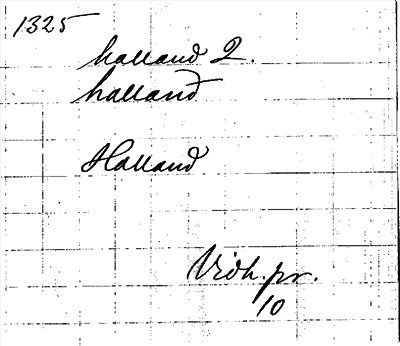 1325
halland 2.
halland
Halland
Vidh. pr.
10